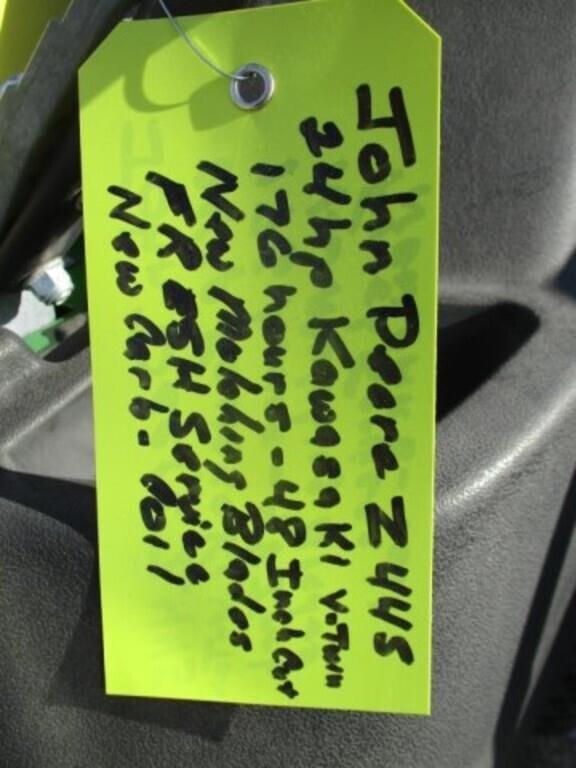 John Deere Z445
24hp Kawasaki V-Twin
176 hours - 48 Inch Cut
New Mulching Blades
FRESH Service
New Carb -